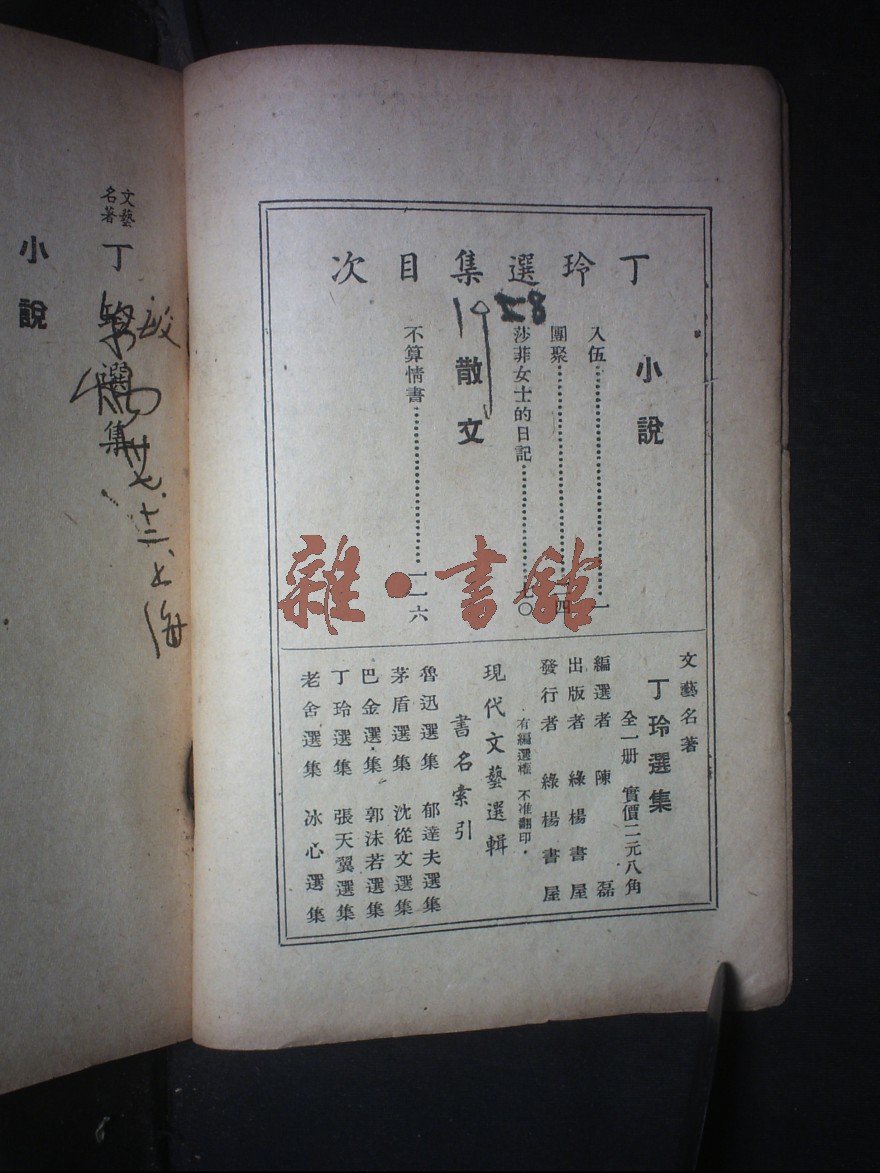 丁玲選集目次
小說
入伍……………………一
團聚……………………一四
莎菲女士的日記……………七〇
1928
散文
不算情書……………………一一六
文藝名著
丁玲選集
全一册 實價二元八角
編選者 陳磊
出版者 綠楊書屋
發行者 綠楊書屋
有編選權 不准翻印
現代文藝選輯
書名索引
魯迅選集 郁達夫選集
茅盾選集 沈從文選集
巴金選集 郭沫若選集
丁玲選集 張天翼選集
老舍選集 冰心選集
雜·書館
文藝名著
丁 選集
廿七、十二、上海
小說